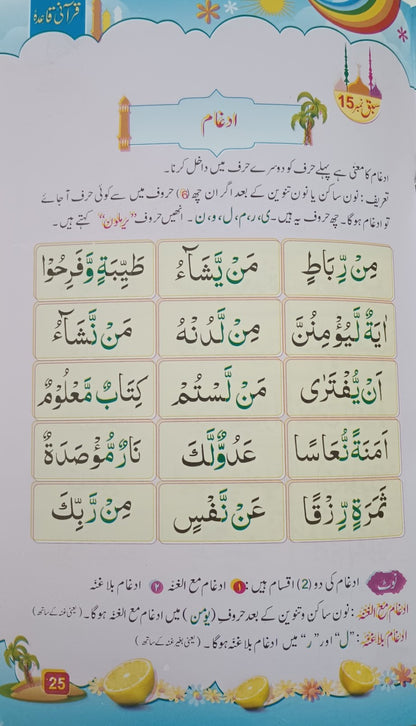 قرآنی قاعدہ
سبق نمبر 15
ادغام
ادغام کا معنی ہے پہلے حرف کو دوسرے حرف میں داخل کرنا۔
تعریف: نون ساکن یا نون تنوین کے بعد اگر ان چھ (6) حروف میں سے کوئی حرف آجائے
تو ادغام ہوگا۔ چھ حروف یہ ہیں۔ ی، ر، م، ل، و، ن۔ انھیں حروف "یرملون" کہتے ہیں۔
مِنْ رِّبَاطٍ مَنْ يَّشَآءُ طَيِّبَةٍ وَّفَرِحُوْا
اٰيَةٌ لَّيُؤْمِنُنَّ مِنْ لَّدُنْهُ مَنْ نَّشَآءُ
اَنْ يُّفْتَرٰى مَنْ لَّسْتُمْ كِتَابٌ مَّعْلُوْمٌ
اَمَنَةً نُّعَاسًا عَدُوٌّ لَّكَ نَارٌ مُّؤْصَدَةٌ
ثَمَرَةٍ رِّزْقًا عَنْ نَّفْسٍ مِنْ رَّبِّكَ
نوٹ ادغام کی دو (2) اقسام ہیں: ۱ ادغام مع الغنّہ ۲ ادغام بلا غنّہ
ادغام مع الغنّہ: نون ساکن و تنوین کے بعد حروفِ (یومن) میں ادغام مع الغنّہ ہوگا۔ (یعنی غنّہ کے ساتھ)
ادغام بلا غنّہ: "ل" اور "ر" میں ادغام بلا غنّہ ہوگا۔ (یعنی بغیر غنّہ کے ساتھ)
25